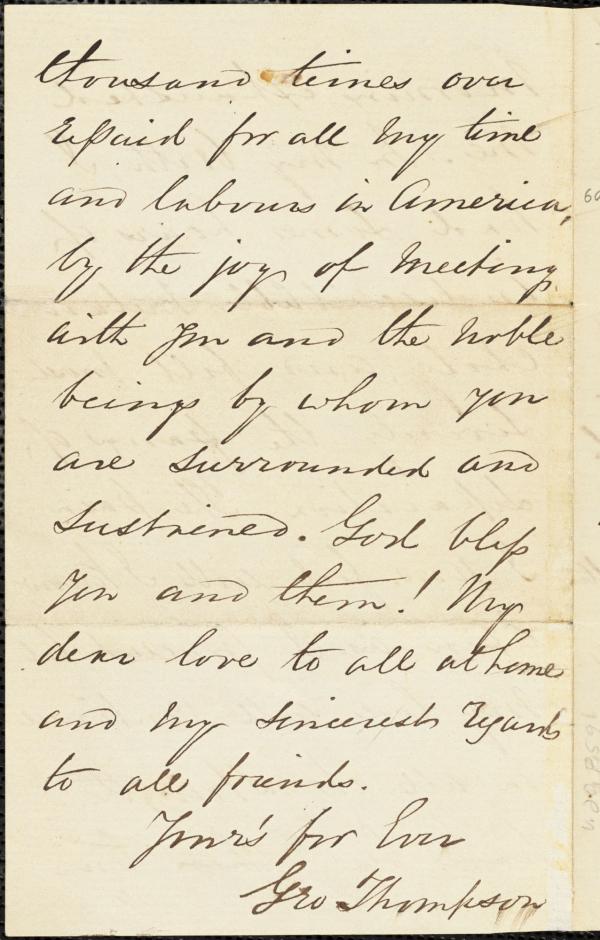 thousand times over
repaid for all my time
and labours in America,
by the joy of meeting
with you and the noble
beings by whom you
are surrounded and
sustained. God bless
you and them! My
dear love to all at home
and my sincerest regards
to all friends.
Your's for Ever
Geo Thompson